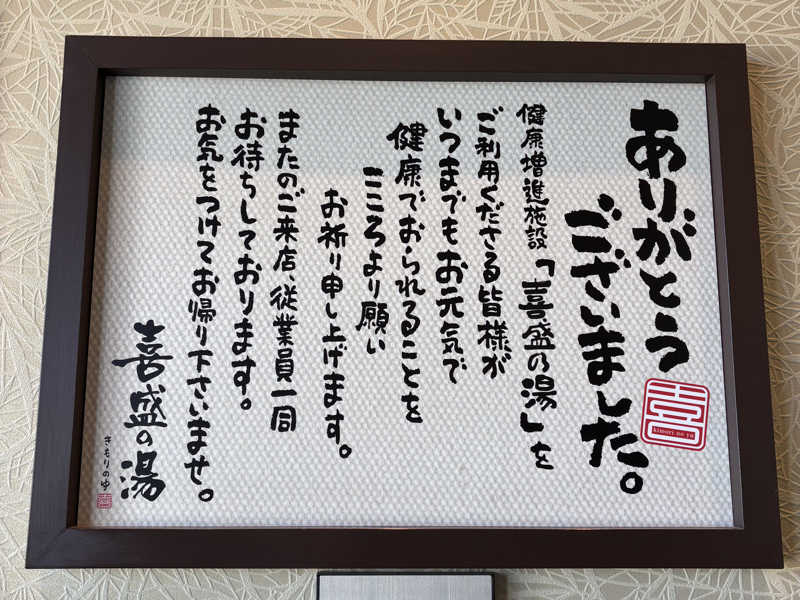 ありがとう
ございました。
喜
kimori no yu
健康増進施設「喜盛の湯」を
ご利用くださる皆様が
いつまでもお元気で
健康でおられることを
こころより願い
お祈り申し上げます。
またのご来店、従業員一同
お待ちしております。
お気をつけてお帰り下さいませ。
喜盛の湯
きもりのゆ
喜